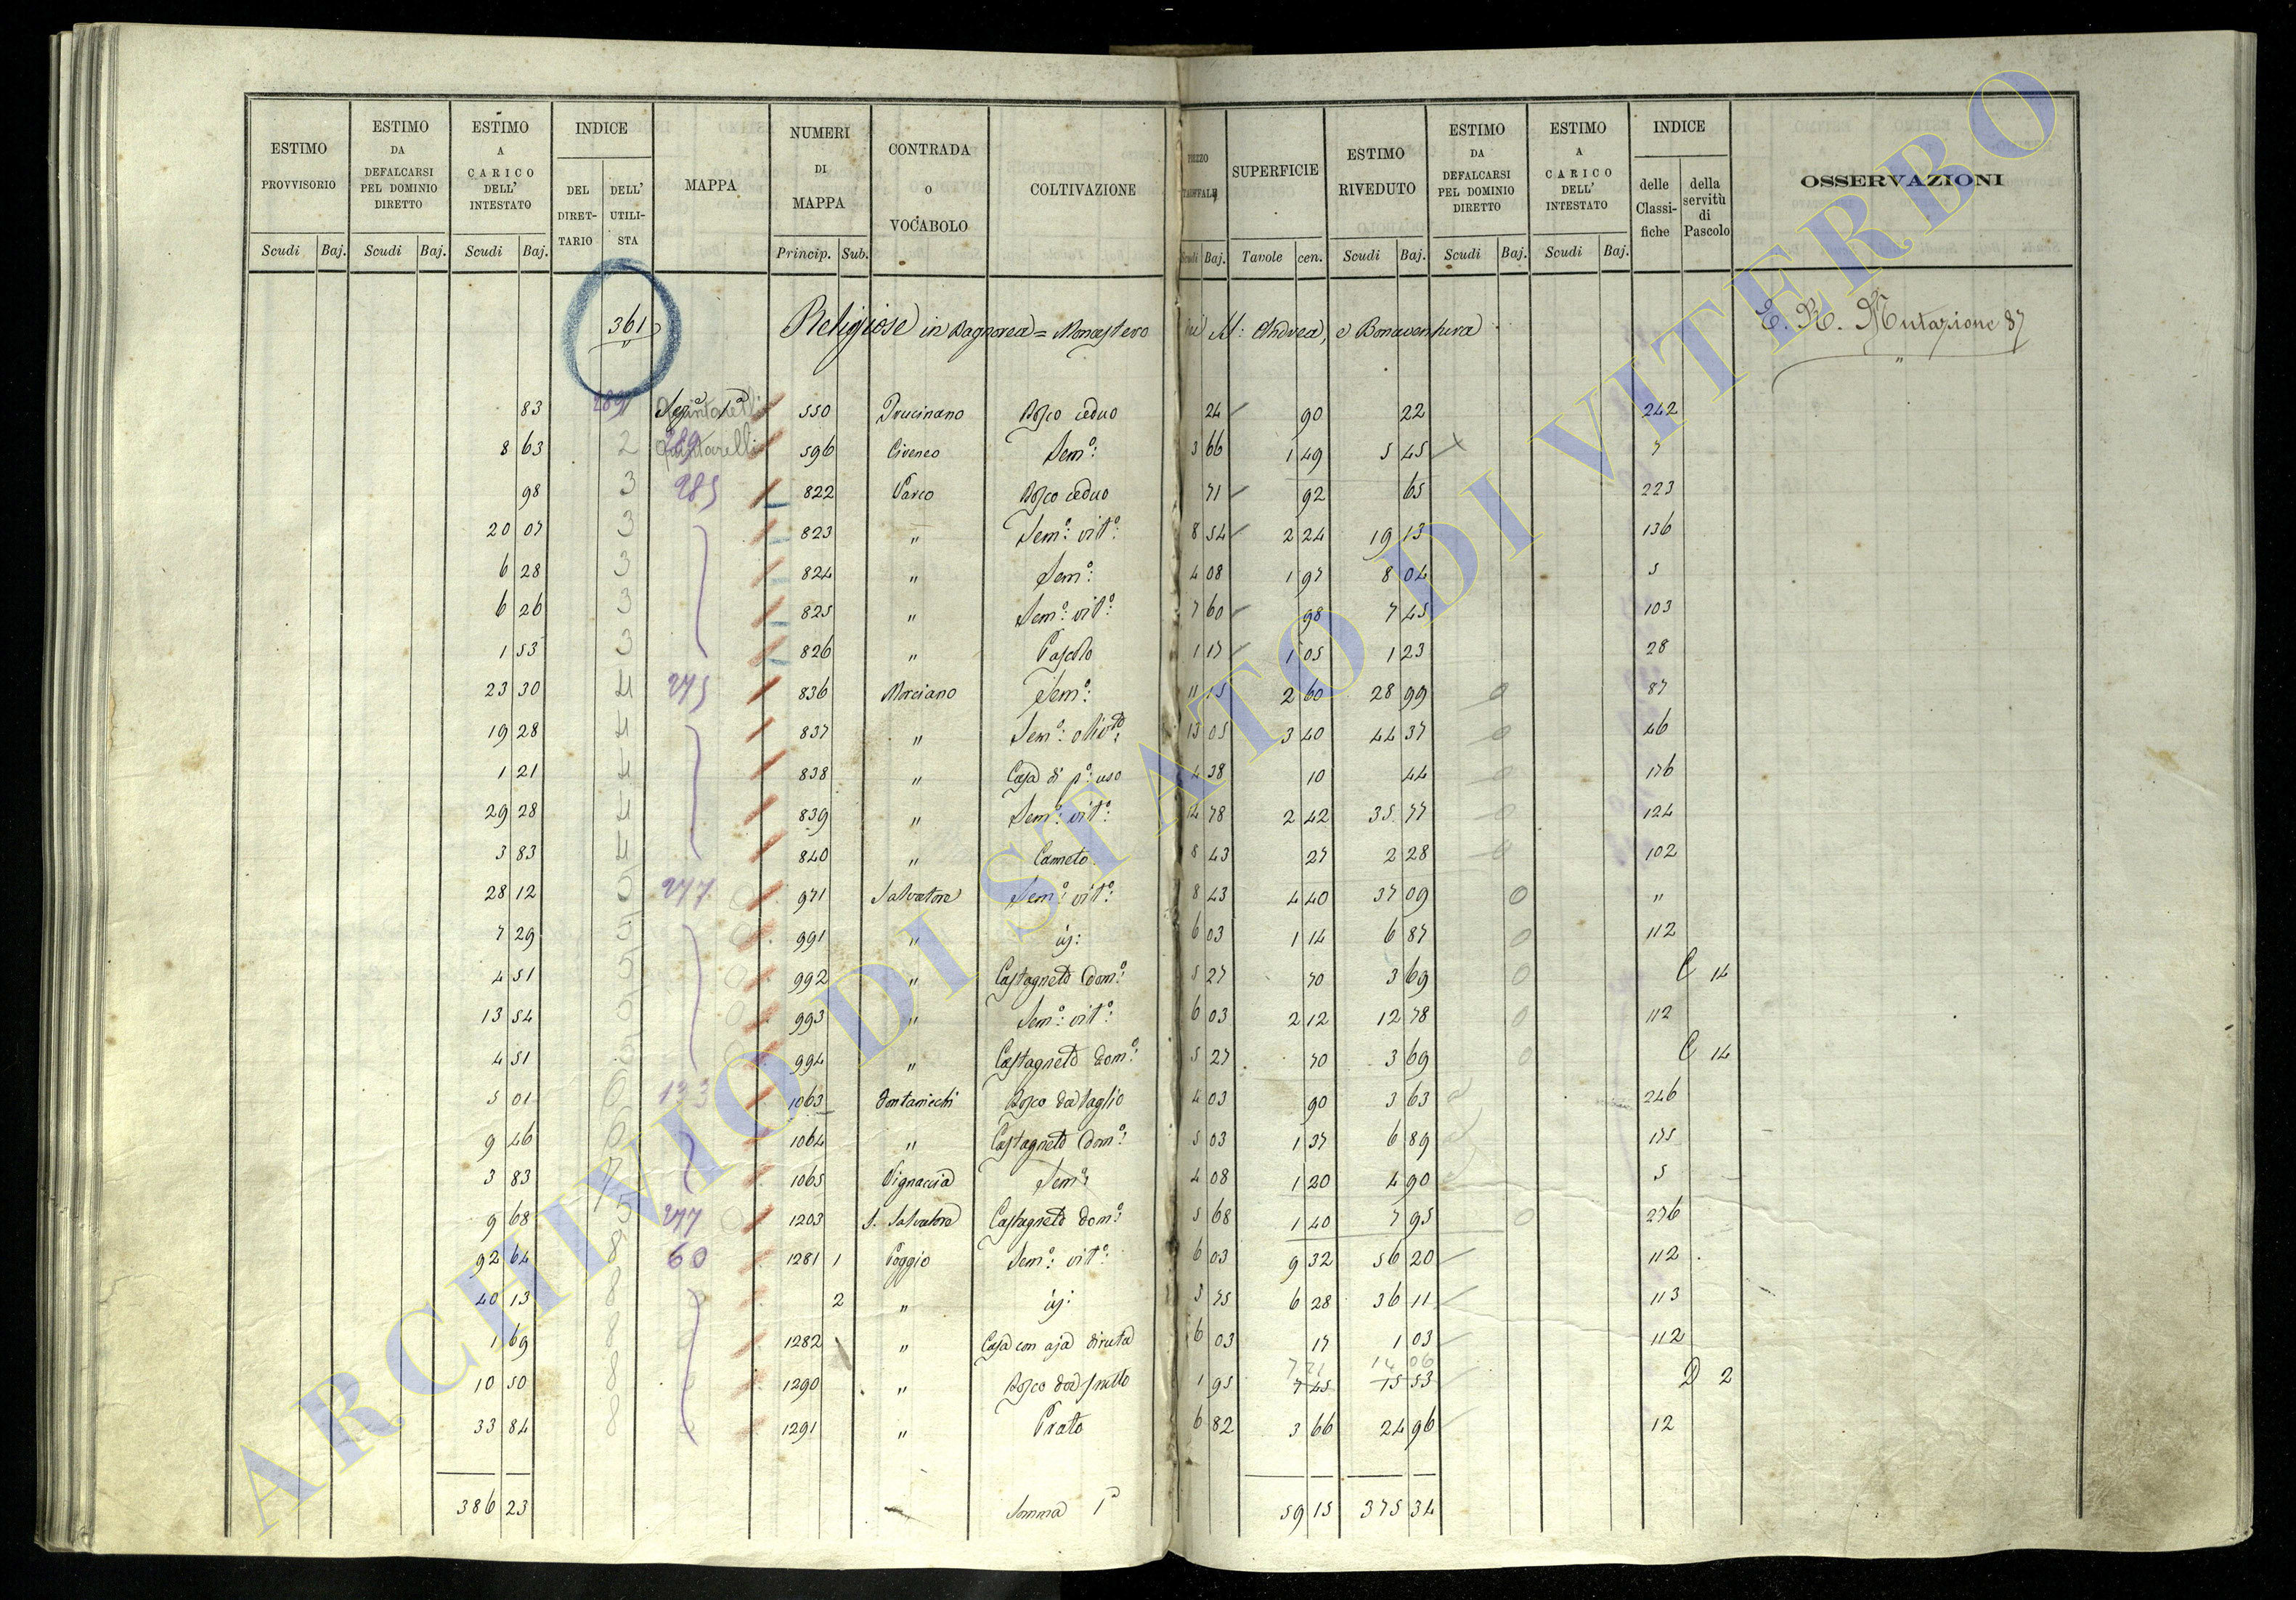 ESTIMO PROVVISORIO | ESTIMO DA DEFALCARSI PEL DOMINIO DIRETTO | ESTIMO A CARICO DELL' INTESTATO | INDICE | MAPPA | NUMERI DI MAPPA | CONTRADA O VOCABOLO | COLTIVAZIONE | SUPERFICIE | ESTIMO RIVEDUTO | ESTIMO DA DEFALCARSI PEL DOMINIO DIRETTO | ESTIMO A CARICO DELL' INTESTATO | INDICE | OSSERVAZIONI
DEL DIRETTARIO | DELL' UTILISTA | delle Classifiche | della servitù di Pascolo
Scudi | Baj. | Scudi | Baj. | Scudi | Baj. | Princip. | Sub. | Baj. | Tavole | cen. | Scudi | Baj. | Scudi | Baj. | Scudi | Baj.
361 Religiose in Bagnorea = Monastero M: Andrea, e Bonaventura E. R. Mutazione 87
83 289 550 Drucinano Bosco ceduo 24 90 22 242
8 63 2 Quintarelli 289 596 Civeneo Sem°: 3 66 1 49 5 45 7
98 3 285 822 Parco Bosco ceduo 71 92 65 223
20 07 3 823 " Sem°: vit°: 8 54 2 24 19 13 136
6 28 3 824 " Sem°: 4 08 1 97 8 04 5
6 26 3 825 " Sem°: vit°: 7 60 98 7 45 103
1 53 3 826 " Pascolo 1 17 1 05 1 23 28
23 30 4 275 836 Morciano Sem°: 11 15 2 60 28 99 87
19 28 4 837 " Sem°: olivto: 13 05 3 40 44 37 46
1 21 4 838 " Casa di p°: uso 4 38 10 44 176
29 28 4 839 " Sem°: vit°: 14 78 2 42 35 77 124
3 83 4 840 " Canneto 8 43 27 2 28 102
28 12 5 277 971 Salvatore Sem°: vit°: 8 43 4 40 37 09 "
7 29 5 991 " 6 03 1 14 6 87 112
4 51 5 992 " Castagneto dom°: 5 27 70 3 69 C 14
13 54 5 993 " Sem°: vit°: 6 03 2 12 12 78 112
4 51 5 994 " Castagneto dom°: 5 27 70 3 69 C 14
5 01 6 133 1063 Bosco da taglio 4 03 90 3 63 246
9 46 6 1064 " Castagneto dom°: 5 03 1 37 6 89 175
3 83 7 1065 Vignaccia Sem°: 4 08 1 20 4 90 5
9 68 5 277 1203 S. Salvatore Castagneto dom°: 5 68 1 40 7 95 276
92 64 8 60 1281 1 Poggio Sem°: vit°: 6 03 9 32 56 20 112
40 13 8 2 " 3 75 6 28 36 11 113
1 69 8 1282 " Casa con aja diruta 6 03 17 1 03 112
7 21 14 06
10 50 8 1290 " Bosco da frutto 1 95 7 45 15 53 D 2
33 84 8 1291 " Prato 6 82 3 66 24 96 12
386 23 Somma 1a 59 15 375 34
ARCHIVIO DI STATO DI VITERBO